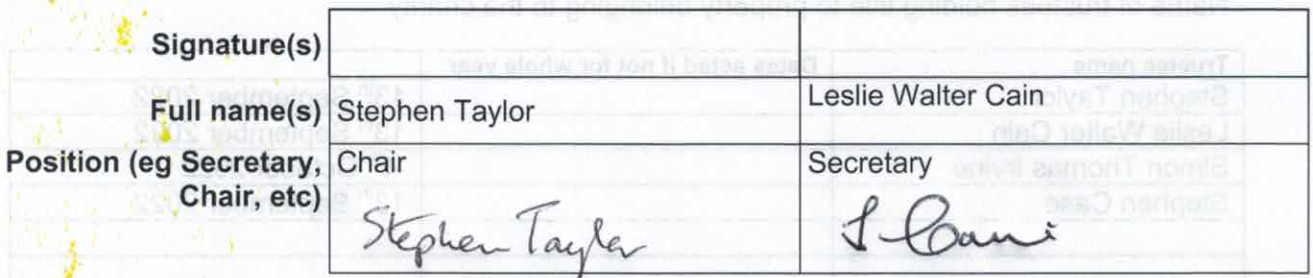 Signature(s)
Full name(s) Stephen Taylor Leslie Walter Cain
Position (eg Secretary, Chair Secretary
Chair, etc)
Stephen Taylor L Cain